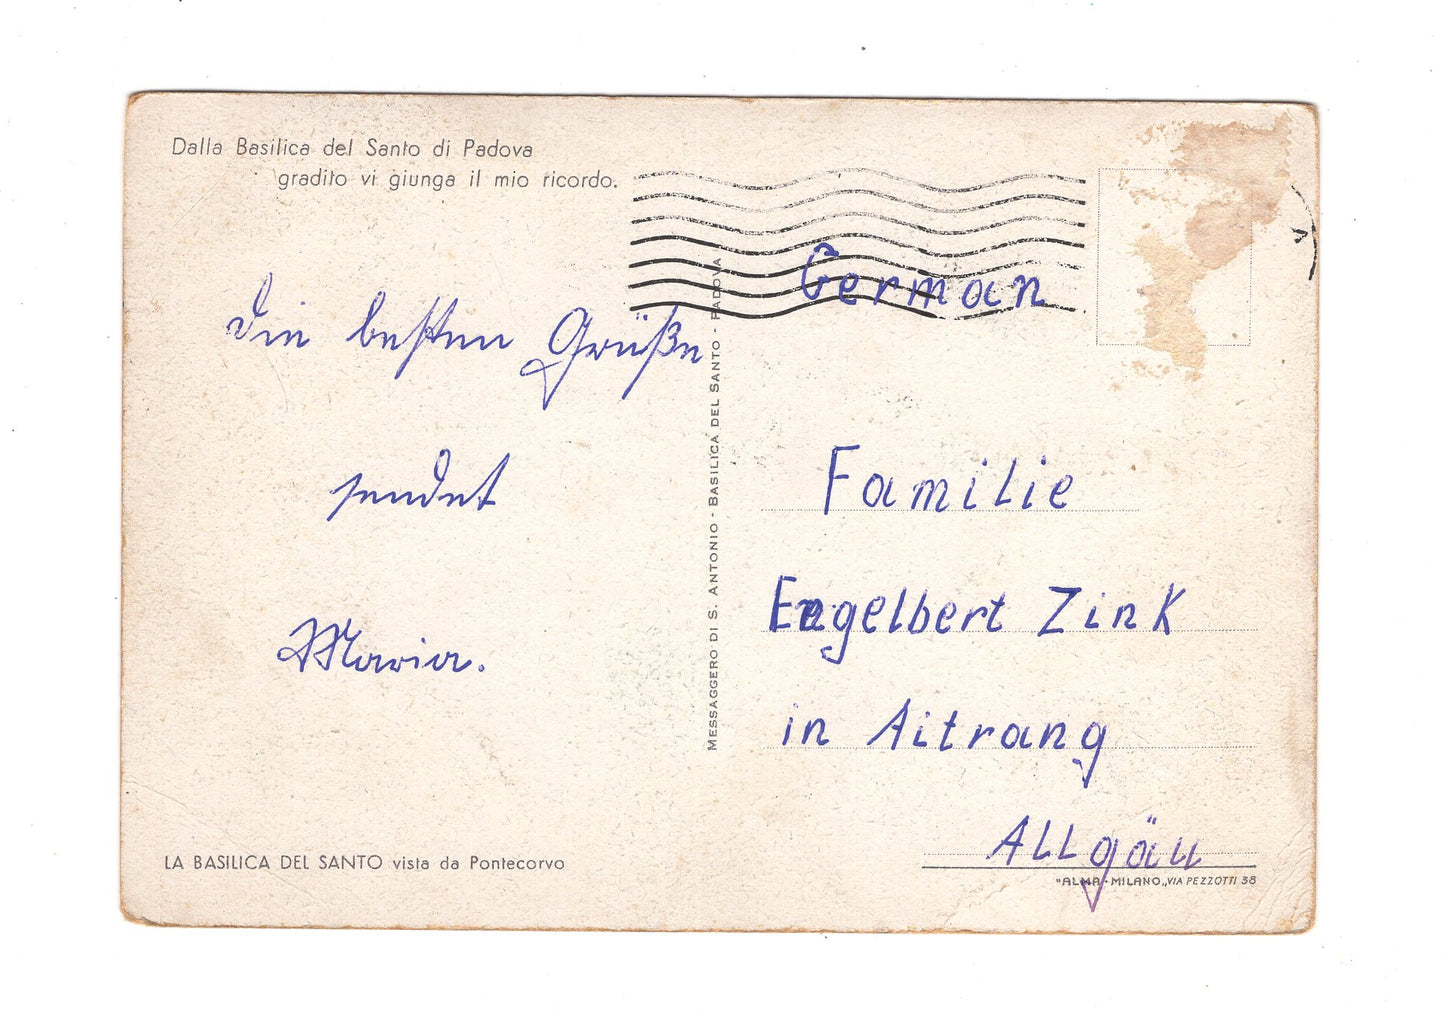 Dalla Basilica del Santo di Padova
gradito vi giunga il mio ricordo.
Die besten Grüße
sendet
Maria.
LA BASILICA DEL SANTO vista da Pontecorvo
MESSAGGERO DI S. ANTONIO - BASILICA DEL SANTO - PADOVA
German
Familie
Engelbert Zink
in Aitrang
Allgäu
"ALMA - MILANO„ VIA PEZZOTTI 38